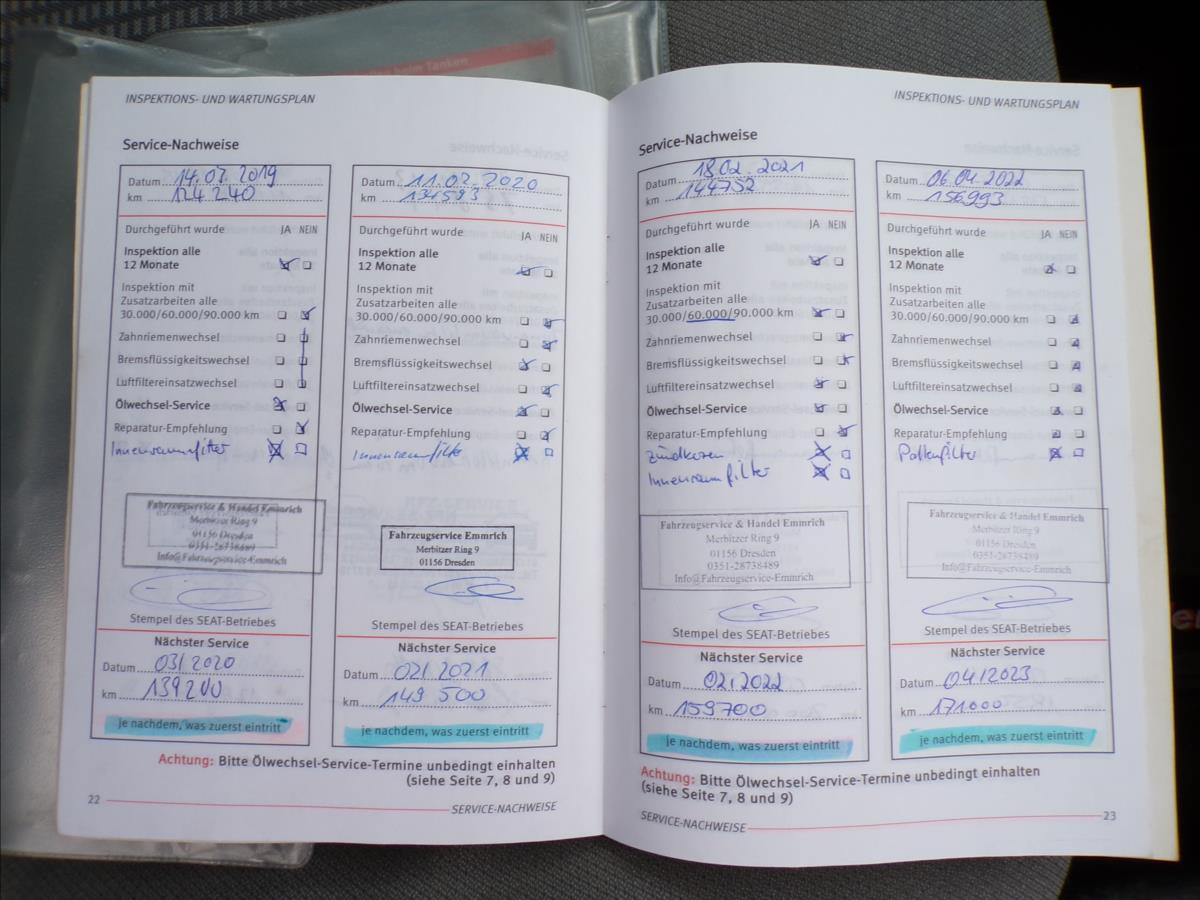 allen beim Tanken
INSPEKTIONS- UND WARTUNGSPLAN
Service-Nachweise
Datum 14.02.2019
km 124240
Durchgeführt wurde JA NEIN
Inspektion alle
12 Monate
Inspektion mit
Zusatzarbeiten alle
30.000/60.000/90.000 km
Zahnriemenwechsel
Bremsflüssigkeitswechsel
Luftfiltereinsatzwechsel
Ölwechsel-Service
Reparatur-Empfehlung
Innenraumfilter
Fahrzeugservice & Handel Emmrich
Merbitzer Ring 9
01156 Dresden
0351-28738489
Info@Fahrzeugservice-Emmrich
Stempel des SEAT-Betriebes
Nächster Service
Datum 03/2020
km 139200
je nachdem, was zuerst eintritt
Datum 11.02.2020
km 134593
Durchgeführt wurde JA NEIN
Inspektion alle
12 Monate
Inspektion mit
Zusatzarbeiten alle
30.000/60.000/90.000 km
Zahnriemenwechsel
Bremsflüssigkeitswechsel
Luftfiltereinsatzwechsel
Ölwechsel-Service
Reparatur-Empfehlung
Innenraumfilter
Fahrzeugservice Emmrich
Merbitzer Ring 9
01156 Dresden
Stempel des SEAT-Betriebes
Nächster Service
Datum 02/2021
km 149 500
je nachdem, was zuerst eintritt
Achtung: Bitte Ölwechsel-Service-Termine unbedingt einhalten
(siehe Seite 7, 8 und 9)
22 SERVICE-NACHWEISE
INSPEKTIONS- UND WARTUNGSPLAN
Service-Nachweise
Datum 18.02.2021
km 144752
Durchgeführt wurde JA NEIN
Inspektion alle
12 Monate
Inspektion mit
Zusatzarbeiten alle
30.000/60.000/90.000 km
Zahnriemenwechsel
Bremsflüssigkeitswechsel
Luftfiltereinsatzwechsel
Ölwechsel-Service
Reparatur-Empfehlung
Zündkerzen
Innenraumfilter
Fahrzeugservice & Handel Emmrich
Merbitzer Ring 9
01156 Dresden
0351-28738489
Info@Fahrzeugservice-Emmrich
Stempel des SEAT-Betriebes
Nächster Service
Datum 02.2022
km 159700
je nachdem, was zuerst eintritt
Datum 06.04.2022
km 156993
Durchgeführt wurde JA NEIN
Inspektion alle
12 Monate
Inspektion mit
Zusatzarbeiten alle
30.000/60.000/90.000 km
Zahnriemenwechsel
Bremsflüssigkeitswechsel
Luftfiltereinsatzwechsel
Ölwechsel-Service
Reparatur-Empfehlung
Pollenfilter
Fahrzeugservice & Handel Emmrich
Merbitzer Ring 9
01156 Dresden
0351-28738489
Info@Fahrzeugservice-Emmrich
Stempel des SEAT-Betriebes
Nächster Service
Datum 04/2023
km 171.000
je nachdem, was zuerst eintritt
Achtung: Bitte Ölwechsel-Service-Termine unbedingt einhalten
(siehe Seite 7, 8 und 9)
SERVICE-NACHWEISE 23